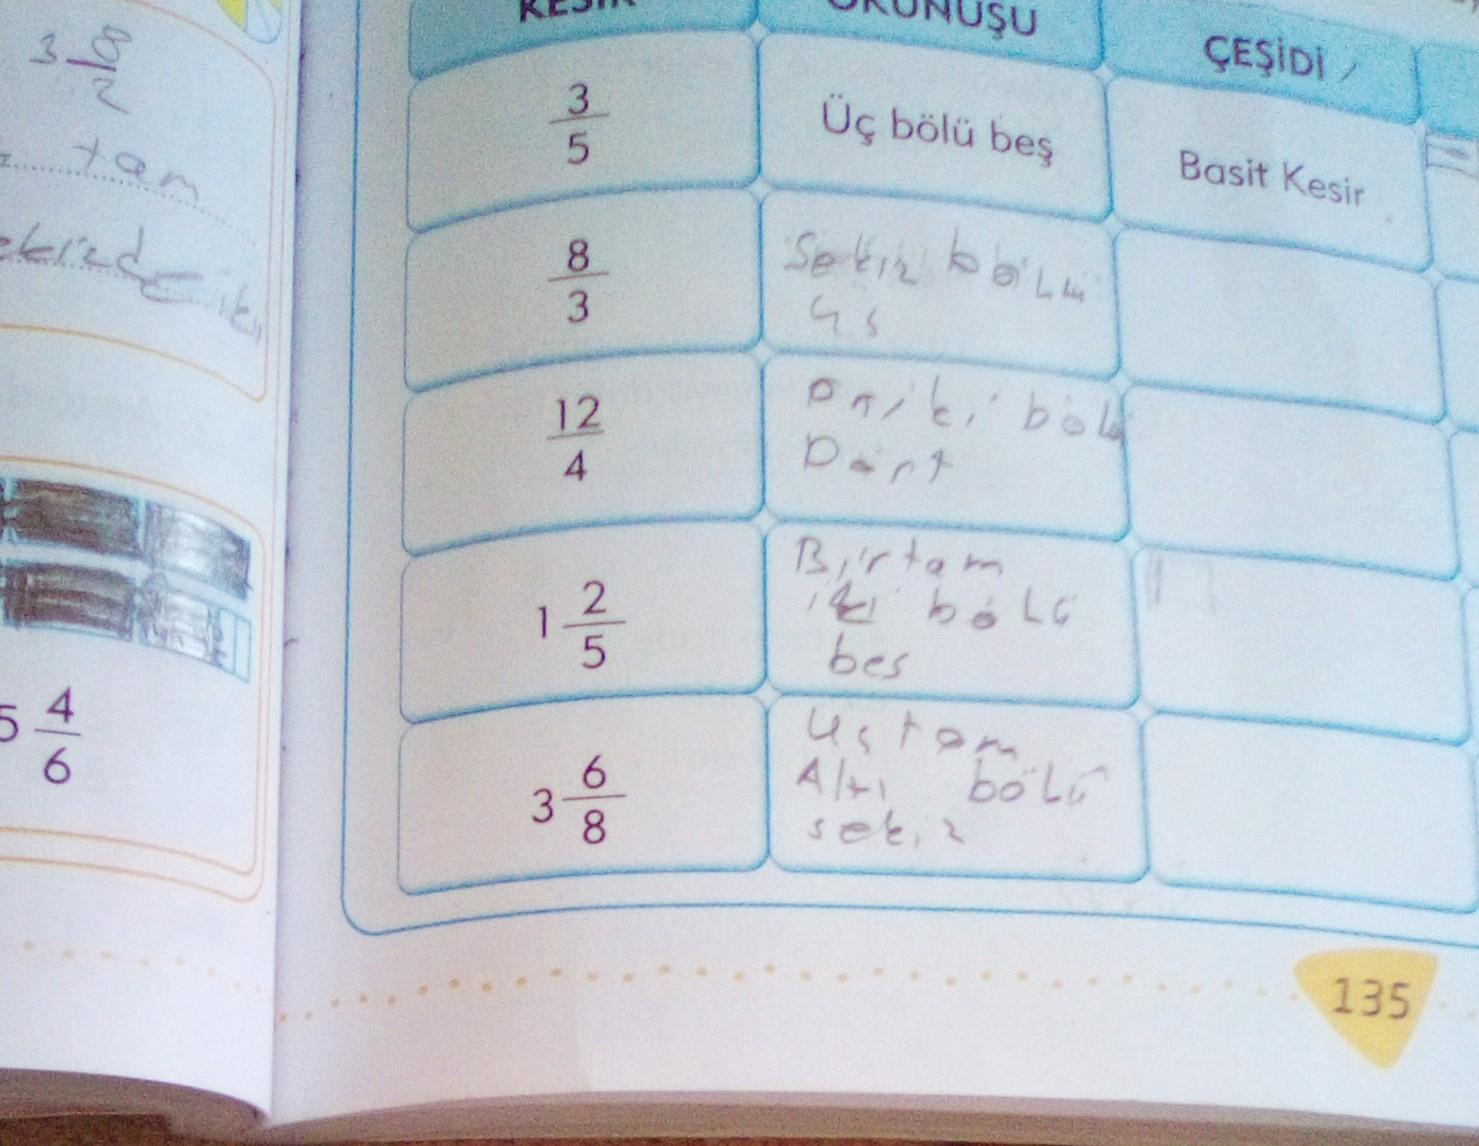 3 8/2
tam
KESİR OKUNUŞU ÇEŞİDİ
3/5 Üç bölü beş Basit Kesir
8/3 Sekiz bölü
üs
12/4 Oniki bölü
Dört
1 2/5 Birtam
iki bölü
bes
3 6/8 Üçtam
Altı bölü
sekiz
5 4/6
135